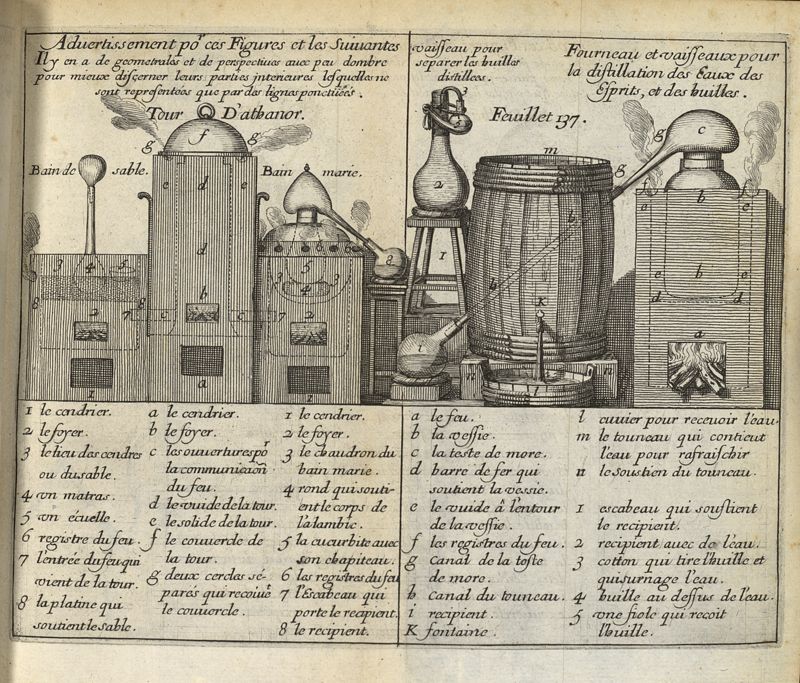 Advertissement poʳ ces Figures et les Suivantes
Il y en a de geometrales et de perspectives avec peu dombre
pour mieux discerner leurs parties interieures lesquelles ne
sont representées que par des lignes ponctuées.
Tour D'athanor.
Bain de sable.
Bain marie.
vaisseau pour
separer les huilles
distillees.
Fourneau et vaisseaux pour
la distillation des Eaux des
Esprits, et des huilles.
Feuillet 137.
1 le cendrier.
2 le foyer.
3 le lieu des cendres
ou du sable.
4 un matras.
5 un écuelle.
6 registre du feu.
7 l'entrée du feu qui
vient de la tour.
8 la platine qui
soutient le sable.
a le cendrier.
b le foyer.
c les ouvertures poʳ
la communicaõn
du feu.
d le vuide de la tour.
e le solide de la tour.
f le couvercle de
la tour.
g deux cercles sé-
parés qui recoivẽ
le couvercle.
1 le cendrier.
2 le foyer.
3 le chaudron du
bain marie.
4 rond qui souti-
ent le corps de
l'alambic.
5 la cucurbite avec
son chapiteau.
6 les registres du feu
7 l'Escabeau qui
porte le recipient.
8 le recipient.
a le feu.
b la vessie.
c la teste de more.
d barre de fer qui
soutient la vessie.
e le vuide à l'entour
de la vessie.
f les registres du feu.
g Canal de la teste
de more.
h canal du touneau.
i recipient.
K fontaine.
l cuvier pour recevoir l'eau.
m le touneau qui contient
l'eau pour rafraischir
n le soustien du touneau.
1 escabeau qui soustient
le recipient.
2 recipient avec de l'eau.
3 cotton qui tire l'huille et
qui surnage l'eau.
4 huille au dessus de l'eau.
5 une fiole qui recoit
l'huille.